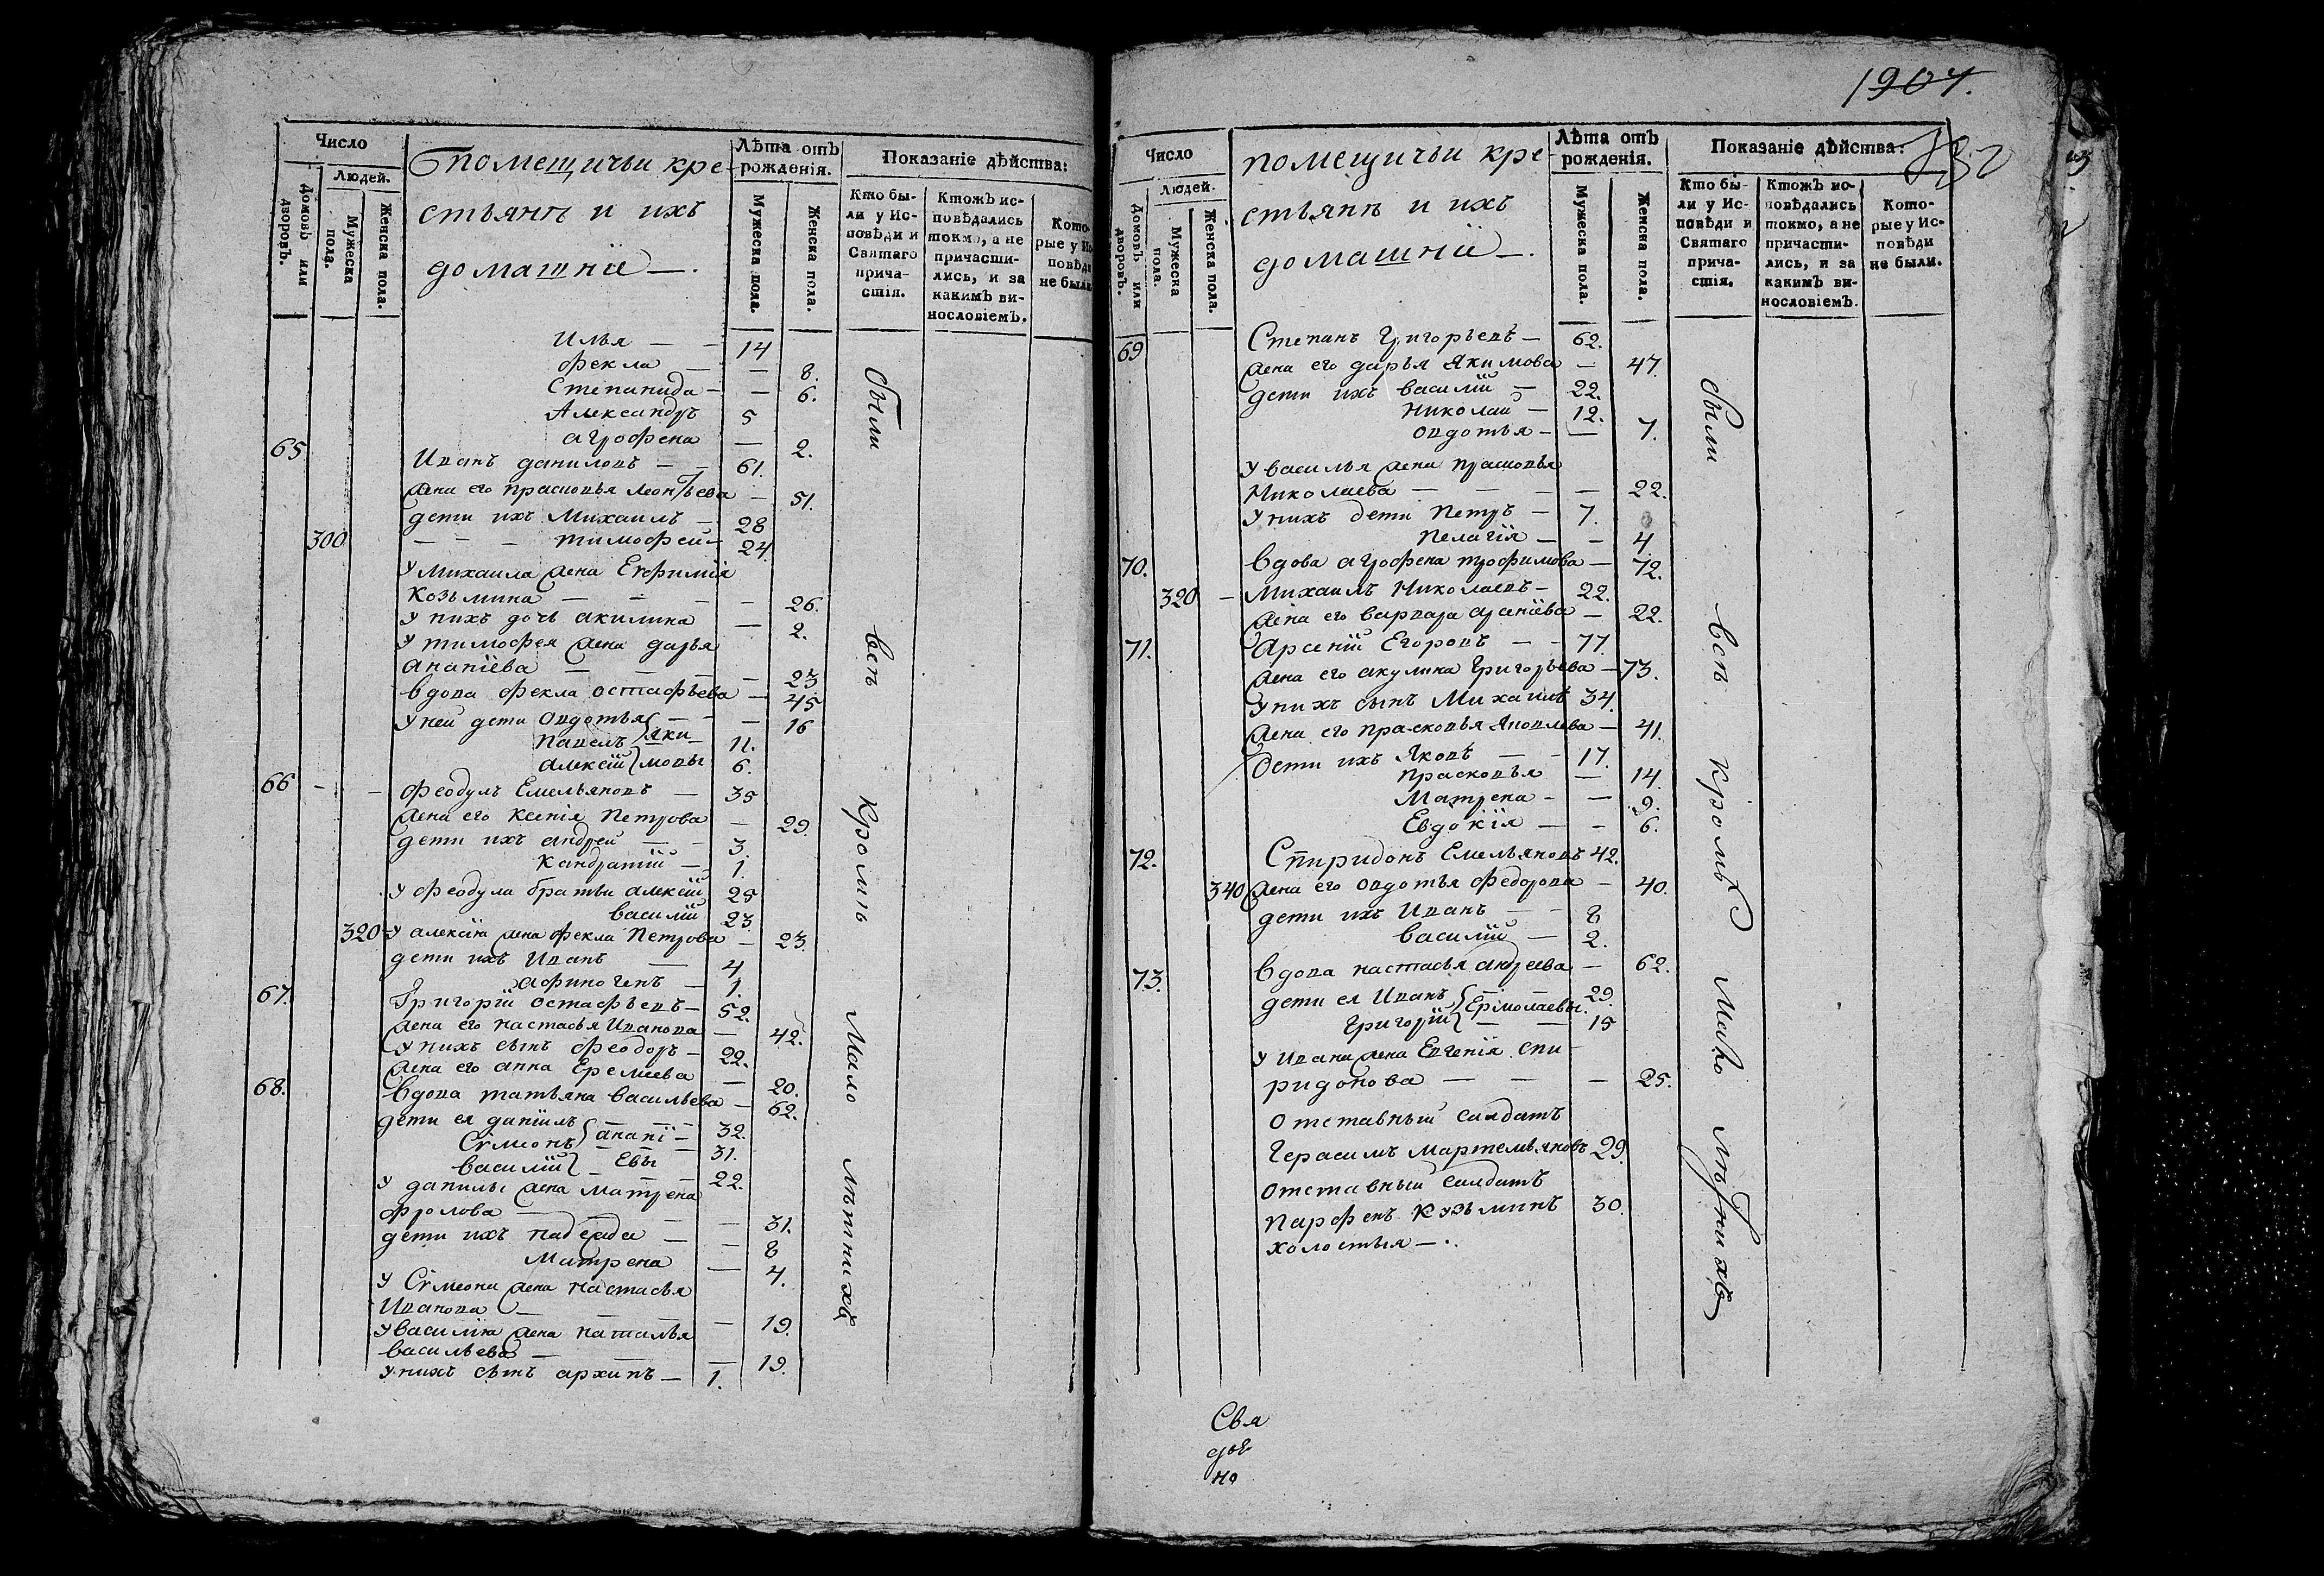 Число
Людей.
Домовъ или дворовъ.
Мужеска пола.
Женска пола.
помещичьи кре-
стьянѣ и ихъ
домашніи —.
Лѣта отъ рожденія.
Мужеска пола.
Женска пола.
Показаніе дѣйства:
Кто бы-
ли у Ис-
повѣди и
Святаго
прича-
стія.
Ктожъ ис-
повѣдались
токмо, а не
причасти-
лись, и за
какимъ ви-
нословіемъ.
Кото-
рые у Ис-
повѣди
не были
Илья — — 14
Фекла — — 8.
Степанида — — 6.
Александръ 5
агрофена — 2.
65 Иванъ даниловъ — — 61.
жена его прасковья Леонтьева — 51.
дети ихъ Михаилъ — 28
300 — — — тимофей — 24.
У михаила жена Евфимія
Козьмина — — — — 26.
У нихъ дочь акилина — 2.
У тимофея жена дарья
Ананіева — — — — 23
вдова фекла остафьева — 45
У ней дети овдотья — — — 16
павелъ яки- 11.
алексій мовы 6.
66 — — феодулъ Емельяновъ — 35
жена его Ксенія Петрова — 29.
дети ихъ андрей — — 3.
Кандратій — 1.
У феодула братьи алексій 25
василій 23.
320 У алексія жена фекла Петрова — 23.
дети ихъ Иванъ — 4
афиногенъ — 1.
67. Григорій остафьевъ — 52.
жена его настасья Иванова — 42.
У нихъ сынъ феодоръ — 22.
жена его анна Еремеева — 20.
68. вдова татьяна васильева — 62.
дети ея даніилъ — — — 32.
Сѵмеонъ анані — 31.
василій — Евы 22.
У данилы жена матрена
фролова — — — — 31.
дети ихъ надежда — — 8
Матрена — 4.
У Сѵмеона жена настасья
Иванова — — — 19.
У василія жена наталья
васильева — — — 19.
У нихъ сынъ архипъ — 1.
были всѣ Кромѣ Мало лѣтнихъ
1904.
732
Число
Людей.
Домовъ или дворовъ.
Мужеска пола.
Женска пола.
помещичьи кре-
стьянѣ и ихъ
домашніи —.
Лѣта отъ рожденія.
Мужеска пола.
Женска пола.
Показаніе дѣйства:
Кто бы-
ли у Ис-
повѣди и
Святаго
прича-
стія.
Ктожъ ис-
повѣдались
токмо, а не
причасти-
лись, и за
какимъ ви-
нословіемъ.
Кото-
рые у Ис-
повѣди
не были.
69 Степанъ Григорьевъ — 62.
жена его дарья Якимова — 47.
дети ихъ василій — 22.
николай — 12.
овдотья — — 7.
У василья жена прасковья
Николаева — — — — 22.
У нихъ дети петръ — 7.
пелагія — — 4
70. вдова агрофена трофимова — 72.
320 — михаилъ Николаевъ — 22.
жена его варвара арсеніева — 22.
71. Арсеній Егоровъ — — 77.
жена его акулина Григорьева — 73.
У нихъ сынъ Михаилъ 34.
жена его прасковья Яковлева — 41.
Дети ихъ Яковъ — — 17.
прасковья — 14.
Матрена — — 9.
Евдокія — — 6.
72. Спиридонъ Емельяновъ 42.
340 жена его овдотья федорова — 40.
дети ихъ Иванъ — — 8
василій — 2.
73. вдова настасья андреева — 62.
дети ея Иванъ Ермолаевы 29.
григорій — — 15
У Ивана жена Евгенія спи-
ридонова — — — 25.
отставный салдатъ
Герасимъ Мартемьяновъ 29.
отставный салдатъ
парфенъ Кузьминъ 30.
холостыя —.
были всѣ Кромѣ Мало лѣтнихъ
Свя